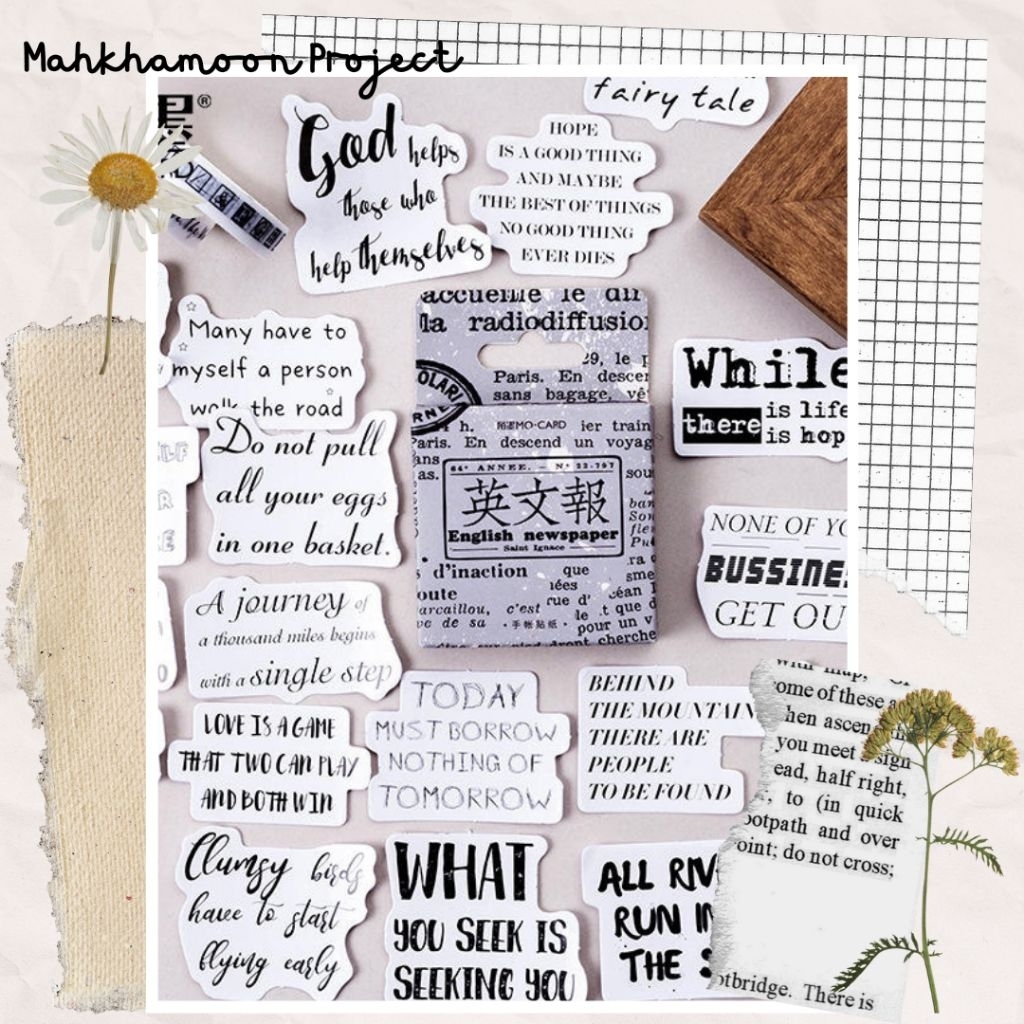 Mahkhamoon Project
fairy tale
God helps
those who
help themselves
HOPE
IS A GOOD THING
AND MAYBE
THE BEST OF THINGS
NO GOOD THING
EVER DIES
Many have to
myself a person
walk the road
Do not pull
all your eggs
in one basket.
A journey of
a thousand miles begins
with a single step
LOVE IS A GAME
THAT TWO CAN PLAY
AND BOTH WIN
Clumsy birds
have to start
flying early
accueille le
la radiodiffusio
29, le p
Paris. En descen
sans bagage,
MEMO-CARD
h. ier train
Paris. En descend un voyag
64e ANNEE. - No 22-797
英文報
English newspaper
Saint Ignace
d'inaction que
arcaillou, c'est
手帐贴纸
pour un v
While
there is life
is hop
NONE OF YO
BUSSINE
GET OU
TODAY
MUST BORROW
NOTHING OF
TOMORROW
BEHIND
THE MOUNTAIN
THERE ARE
PEOPLE
TO BE FOUND
WHAT
YOU SEEK IS
SEEKING YOU
ALL RIV
RUN IN
THE S
with map,
ome of these a
hen ascen
you meet a sign
ead, half right,
to (in quick
ootpath and over
oint; do not cross;
otbridge. There is